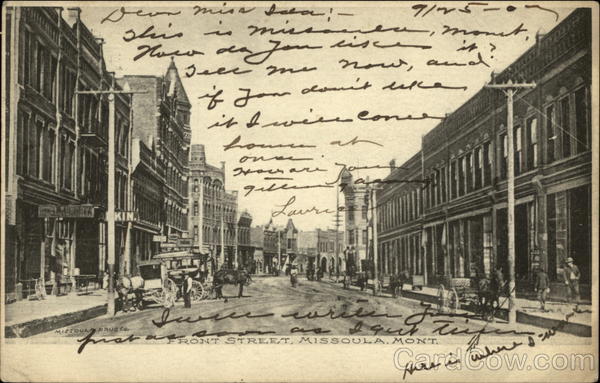 Dear Miss Ida:- 9/25-07
This is Missoula, Mont.
How do you like it?
Tell me now, and
if you don't like
it I will come
home at
once
How are you
getting
I will write you
just as soon as I get time
Here is where I
MISSOULA DRUG CO.
FRONT STREET, MISSOULA, MONT.
CardCow.com